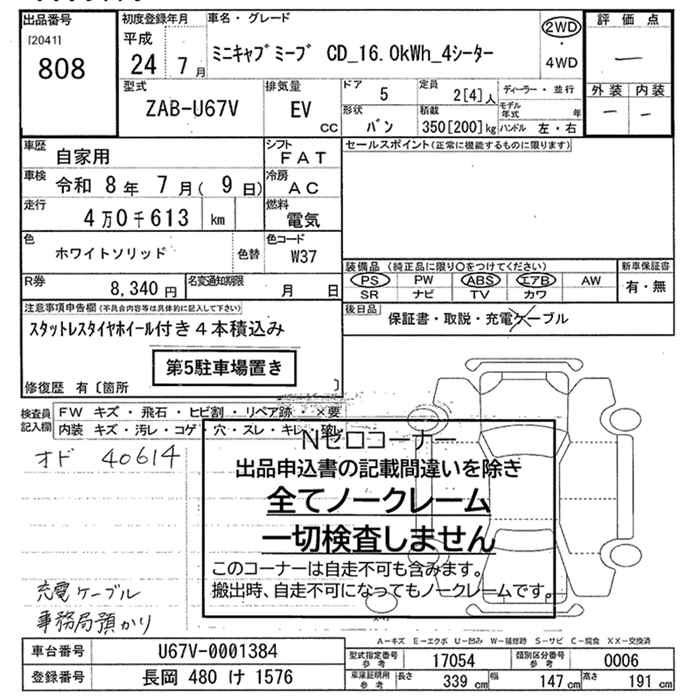 出品番号
[2041]
808
初度登録年月
平成
24 7月
車名・グレード
ミニキャブミーブ CD_16.0kWh_4シーター
2WD
・
4WD
評価点
―
外装 内装
― ―
型式
ZAB-U67V
排気量
EV
cc
ドア
5
定員
2[4]人
ディーラー・並行
モデル年式 年
形状
バン
積載
350[200]kg
ハンドル 左・右
車歴
自家用
シフト
FAT
セールスポイント(正常に機能するものに限ります)
車検
令和 8年 7月( 9日)
冷房
AC
走行
4万0千613 km
燃料
電気
色
ホワイトソリッド
色替
色コード
W37
R券
8,340円
名変通知期限
月 日
装備品 (純正品に限り○をつけてください)
新車保証書
PS PW ABS エアB AW
有・無
SR ナビ TV カワ
後日品
保証書・取説・充電ケーブル
注意事項申告欄(不具合内容等は具体的に記入して下さい)
スタットレスタイヤホイール付き4本積込み
第5駐車場置き
修復歴 有〔箇所 〕
検査員記入欄
FW キズ・飛石・ヒビ割・リペア跡・×要
内装 キズ・汚レ・コゲ・穴・スレ・キレ・破レ
オド 40614
Nゼロコーナー
出品申込書の記載間違いを除き
全てノークレーム
一切検査しません
このコーナーは自走不可も含みます。
搬出時、自走不可になってもノークレームです。
充電ケーブル
事務局預かり
A-キズ E-エクボ U-凹み W-補修跡 S-サビ C-腐食 XX-交換済
車台番号
U67V-0001384
型式指定番号
参考
17054
類別区分番号
参考
0006
登録番号
長岡 480 け 1576
車庫証明用
参考
長さ 339 cm
幅 147 cm
高さ 191 cm